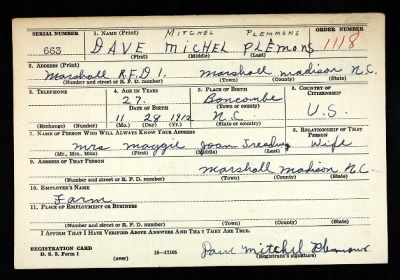 SERIAL NUMBER 1. NAME (Print) MITCHEL PLEMMONS ORDER NUMBER
663 DAVE MICHEL PLEMONS 1118
(First) (Middle) (Last)
2. ADDRESS (Print)
Marshall R.F.D 1. Marshall Madison N.C.
(Number and street or R. F. D. number) (Town) (County) (State)
3. TELEPHONE 4. AGE IN YEARS 5. PLACE OF BIRTH 6. COUNTRY OF CITIZENSHIP
27. Boncombe
DATE OF BIRTH (Town or county)
11 28 1912 N.C. U.S.
(Exchange) (Number) (Mo.) (Day) (Yr.) (State or country)
7. NAME OF PERSON WHO WILL ALWAYS KNOW YOUR ADDRESS 8. RELATIONSHIP OF THAT PERSON
Mrs Maggie Joan Wife
(Mr., Mrs., Miss) (First) (Middle) (Last)
9. ADDRESS OF THAT PERSON
Marshall Madison N.C.
(Number and street or R. F. D. number) (Town) (County) (State)
10. EMPLOYER'S NAME
Farm
11. PLACE OF EMPLOYMENT OR BUSINESS
(Number and street or R. F. D. number) (Town) (County) (State)
I AFFIRM THAT I HAVE VERIFIED ABOVE ANSWERS AND THAT THEY ARE TRUE.
REGISTRATION CARD
D. S. S. Form 1 (over) 16-17105 Dave Mitchel Plemons
(Registrant's signature)